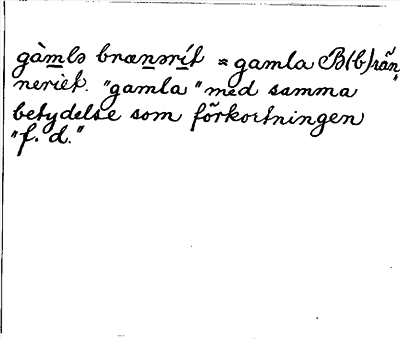 gàmlə brænərít = gamla B(b)rän-
neriet. "gamla" med samma
betydelse som förkortningen
"f. d."